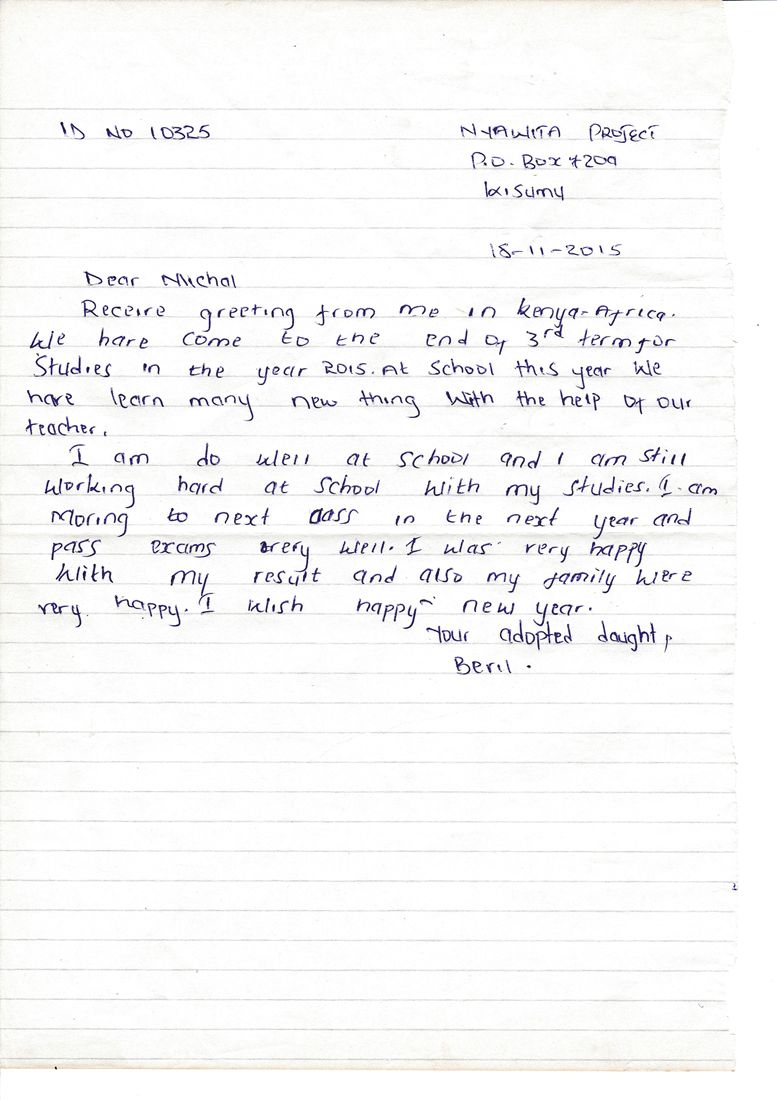 ID NO 10325
NYAWITA PROJECT
P.O. Box 7209
Kisumu
18-11-2015
Dear Michal
Receive greeting from me in Kenya-Africa.
We have come to the end of 3rd term for
Studies in the year 2015. At School this year We
have learn many new thing With the help of our
teacher.
I am do well at school and I am still
Working hard at school with my studies. I am
Moving to next class in the next year and
pass exams very well. I was very happy
With my result and also my family were
very happy. I wish happy new year.
Your adopted daught,
Beril.